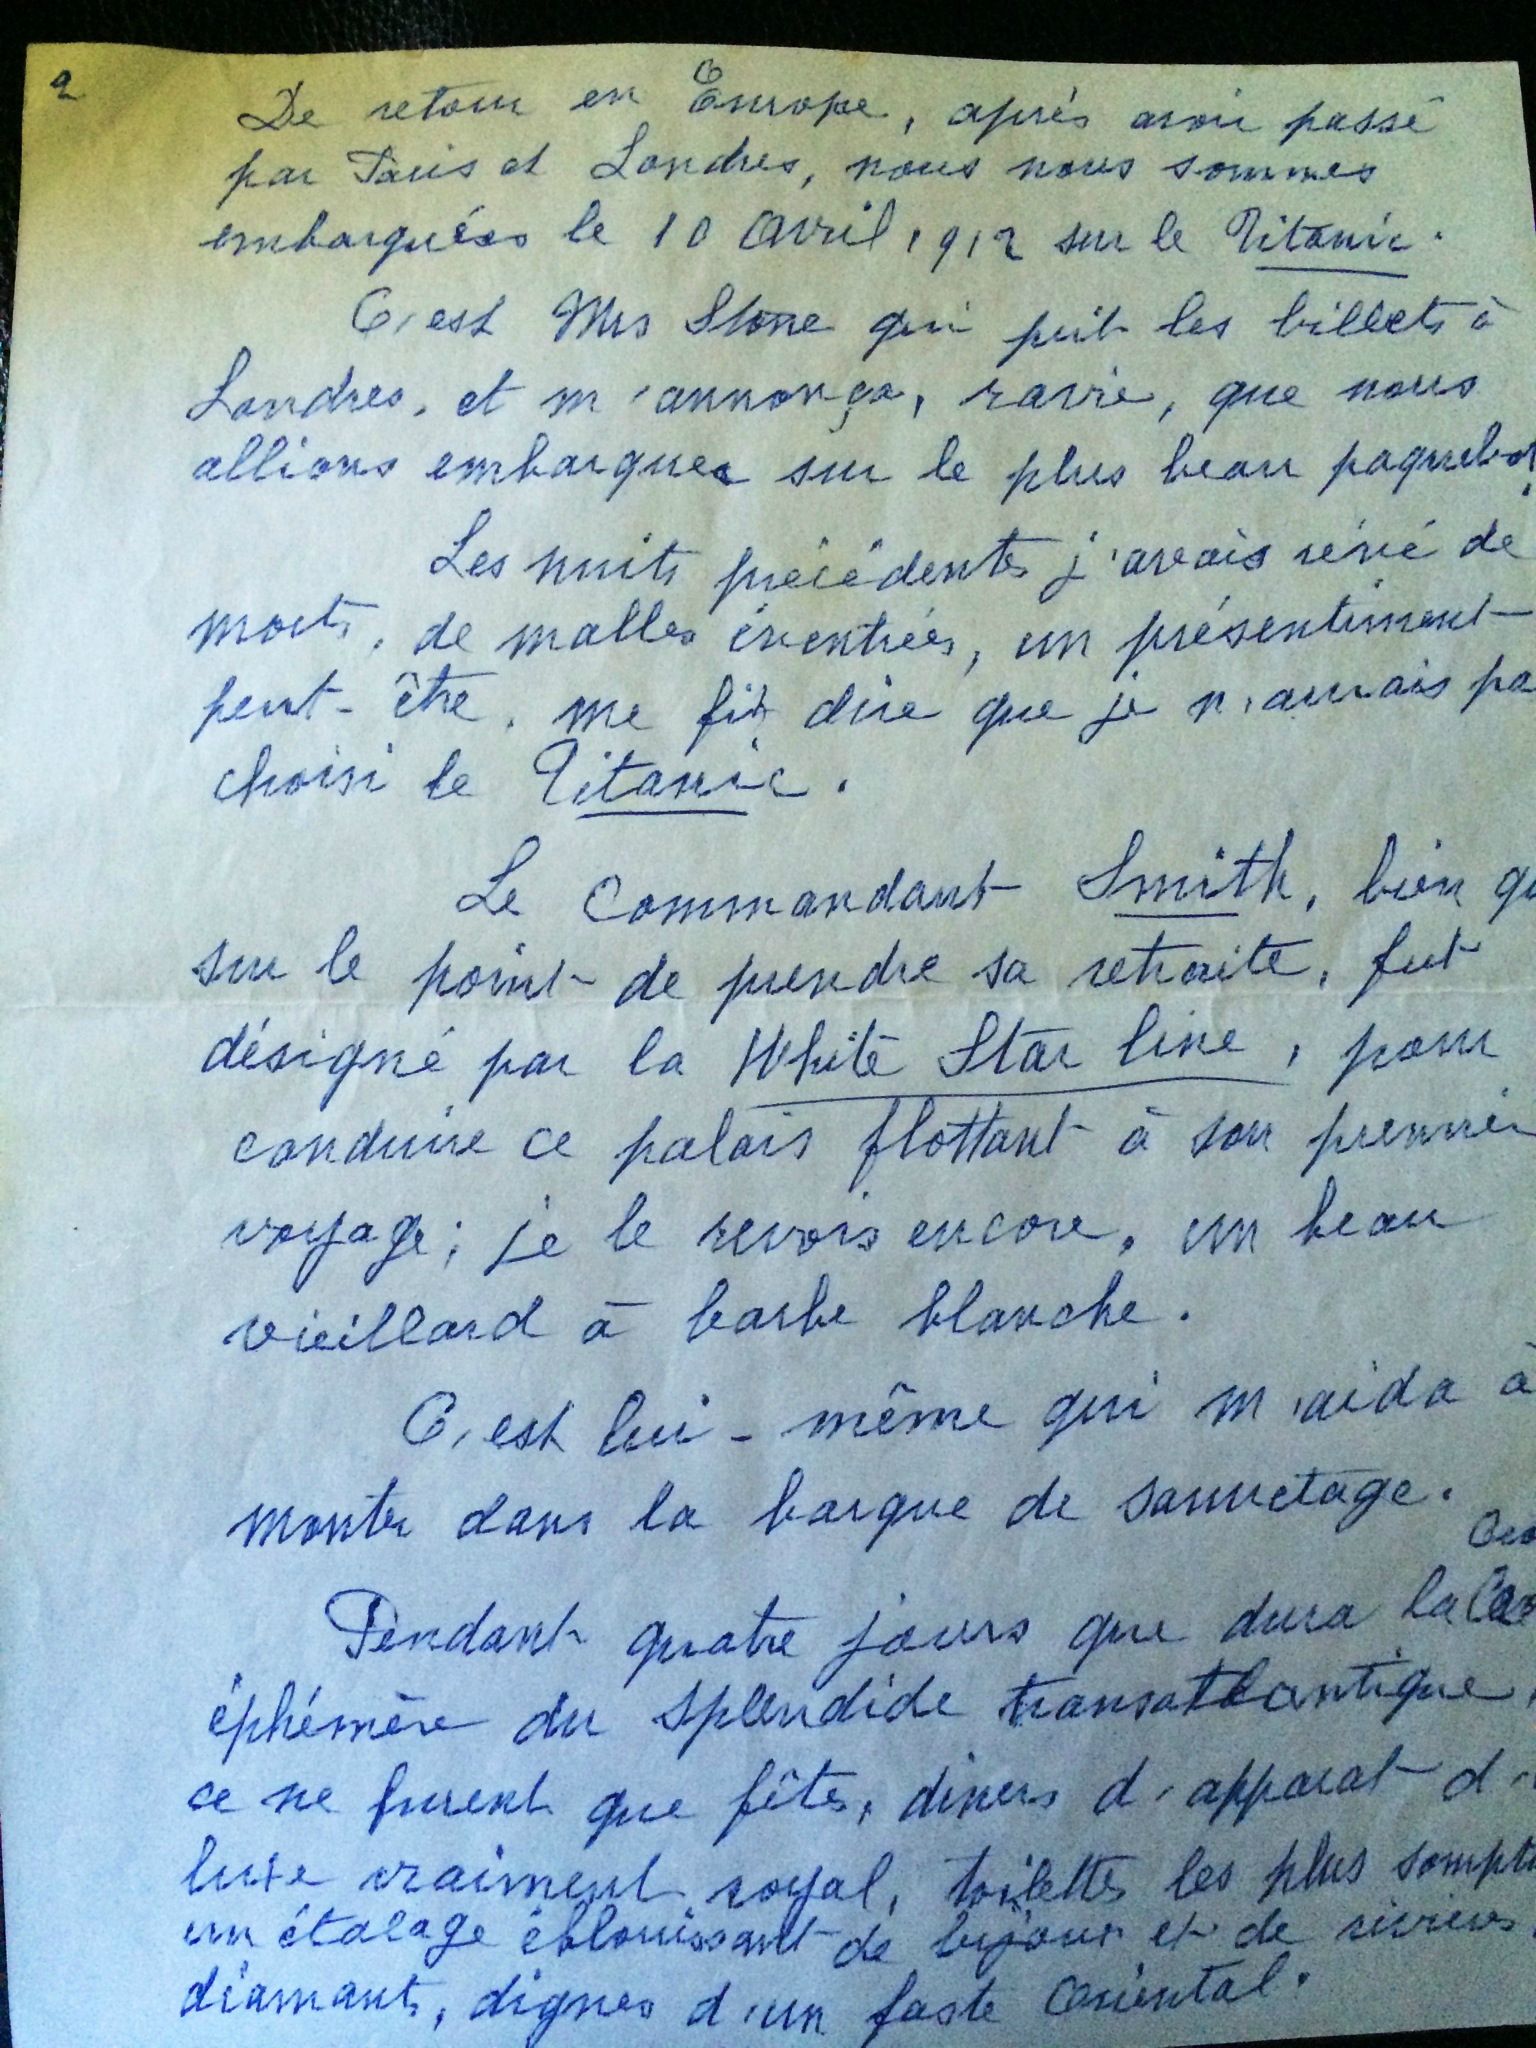 2
De retour en Europe, après avoir passé
par Paris et Londres, nous nous sommes
embarquées le 10 Avril 1912 sur le Titanic.
C'est Mrs Stone qui prit les billets à
Londres, et m'annonça, ravie, que nous
allions embarquer sur le plus beau paquebot.
Les nuits précédentes j'avais rêvé de
morts, de malles éventrées, un présentiment
peut-être, me fit dire que je n'aurais pa
choisi le Titanic.
Le Commandant Smith, bien qu
sur le point de prendre sa retraite, fut
désigné par la White Star line, pour
conduire ce palais flottant à son premier
voyage; je le revois encore, un beau
vieillard à barbe blanche.
C'est lui-même qui m'aida à
monter dans la barque de sauvetage.
Pendant quatre jours que dura la
éphémère du splendide transatlantique,
ce ne furent que fêtes, diners d'apparat d'
luxe vraiment royal, toilettes les plus sompt
un étalage éblouissant de bijoux et de rivières
diamants, dignes d'un faste Oriental.